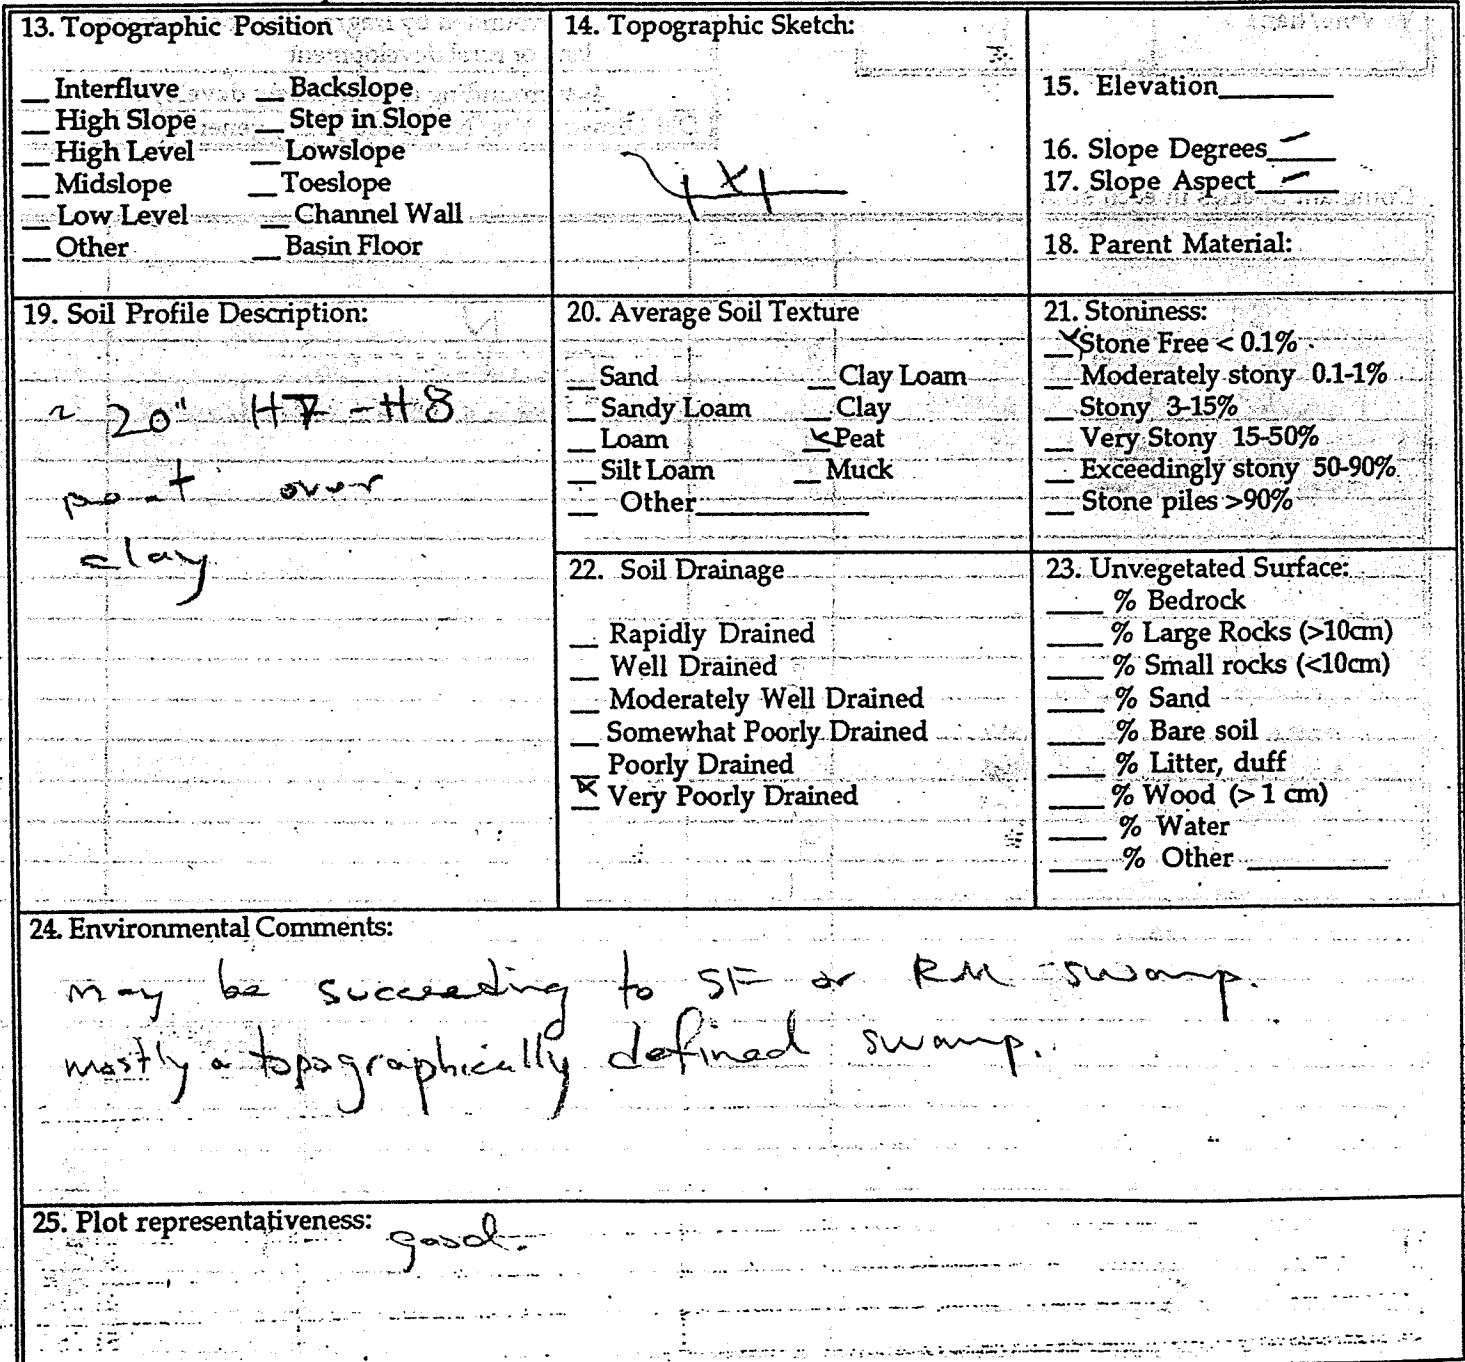 13. Topographic Position
__ Interfluve __ Backslope
__ High Slope __ Step in Slope
__ High Level __ Lowslope
__ Midslope __ Toeslope
__ Low Level __ Channel Wall
__ Other __ Basin Floor
14. Topographic Sketch:
15. Elevation________
16. Slope Degrees_–_
17. Slope Aspect_–_
18. Parent Material:
19. Soil Profile Description:
~ 20" H7 - H8
peat over
clay
20. Average Soil Texture
__ Sand __ Clay Loam
__ Sandy Loam __ Clay
__ Loam x Peat
__ Silt Loam __ Muck
__ Other____________
21. Stoniness:
x Stone Free < 0.1%
__ Moderately stony 0.1-1%
__ Stony 3-15%
__ Very Stony 15-50%
__ Exceedingly stony 50-90%
__ Stone piles >90%
22. Soil Drainage
__ Rapidly Drained
__ Well Drained
__ Moderately Well Drained
__ Somewhat Poorly Drained
__ Poorly Drained
x Very Poorly Drained
23. Unvegetated Surface:
____ % Bedrock
____ % Large Rocks (>10cm)
____ % Small rocks (<10cm)
____ % Sand
____ % Bare soil
____ % Litter, duff
____ % Wood (> 1 cm)
____ % Water
____ % Other __________
24. Environmental Comments:
may be succeeding to SF or RM swamp.
mostly a topographically defined swamp.
25. Plot representativeness: good.